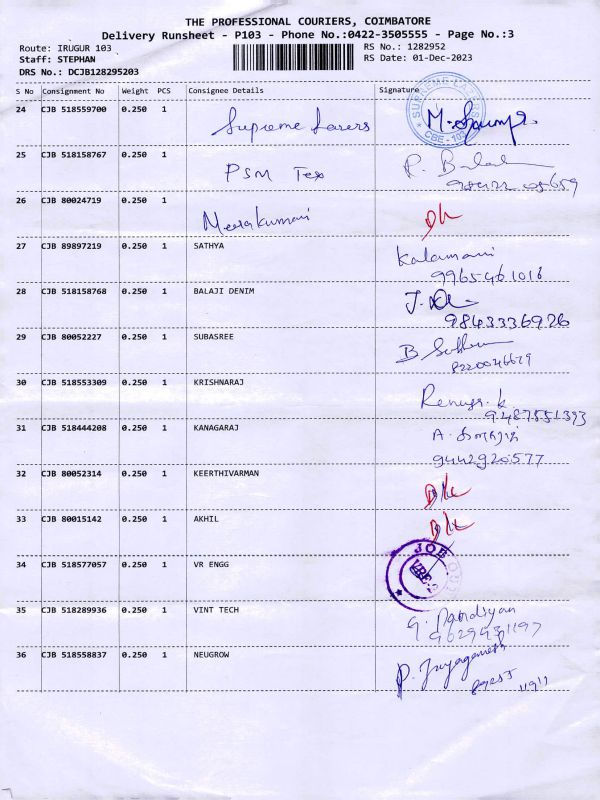 THE PROFESSIONAL COURIERS, COIMBATORE
Delivery Runsheet - P103 - Phone No.:0422-3505555 - Page No.:3
Route: IRUGUR 103
RS No.: 1282952
Staff: STEPHAN
RS Date: 01-Dec-2023
DRS No.: DCJB128295203
S No Consignment No Weight PCS Consignee Details Signature
24 CJB 518559700 0.250 1 Supreme Lasers
SUPREME LAZERS
CBE-103
25 CJB 518158767 0.250 1 PSM Tex
26 CJB 80024719 0.250 1 Meerakumari
27 CJB 89897219 0.250 1 SATHYA Kalamani
9965461016
28 CJB 518158768 0.250 1 BALAJI DENIM
9843336926
29 CJB 80052227 0.250 1 SUBASREE
30 CJB 518553309 0.250 1 KRISHNARAJ Renuga. k
9487551393
31 CJB 518444208 0.250 1 KANAGARAJ
9442920577
32 CJB 80052314 0.250 1 KEERTHIVARMAN
33 CJB 80015142 0.250 1 AKHIL
34 CJB 518577057 0.250 1 VR ENGG JOB
35 CJB 518289936 0.250 1 VINT TECH G. Pandiyan
36 CJB 518558837 0.250 1 NEUGROW